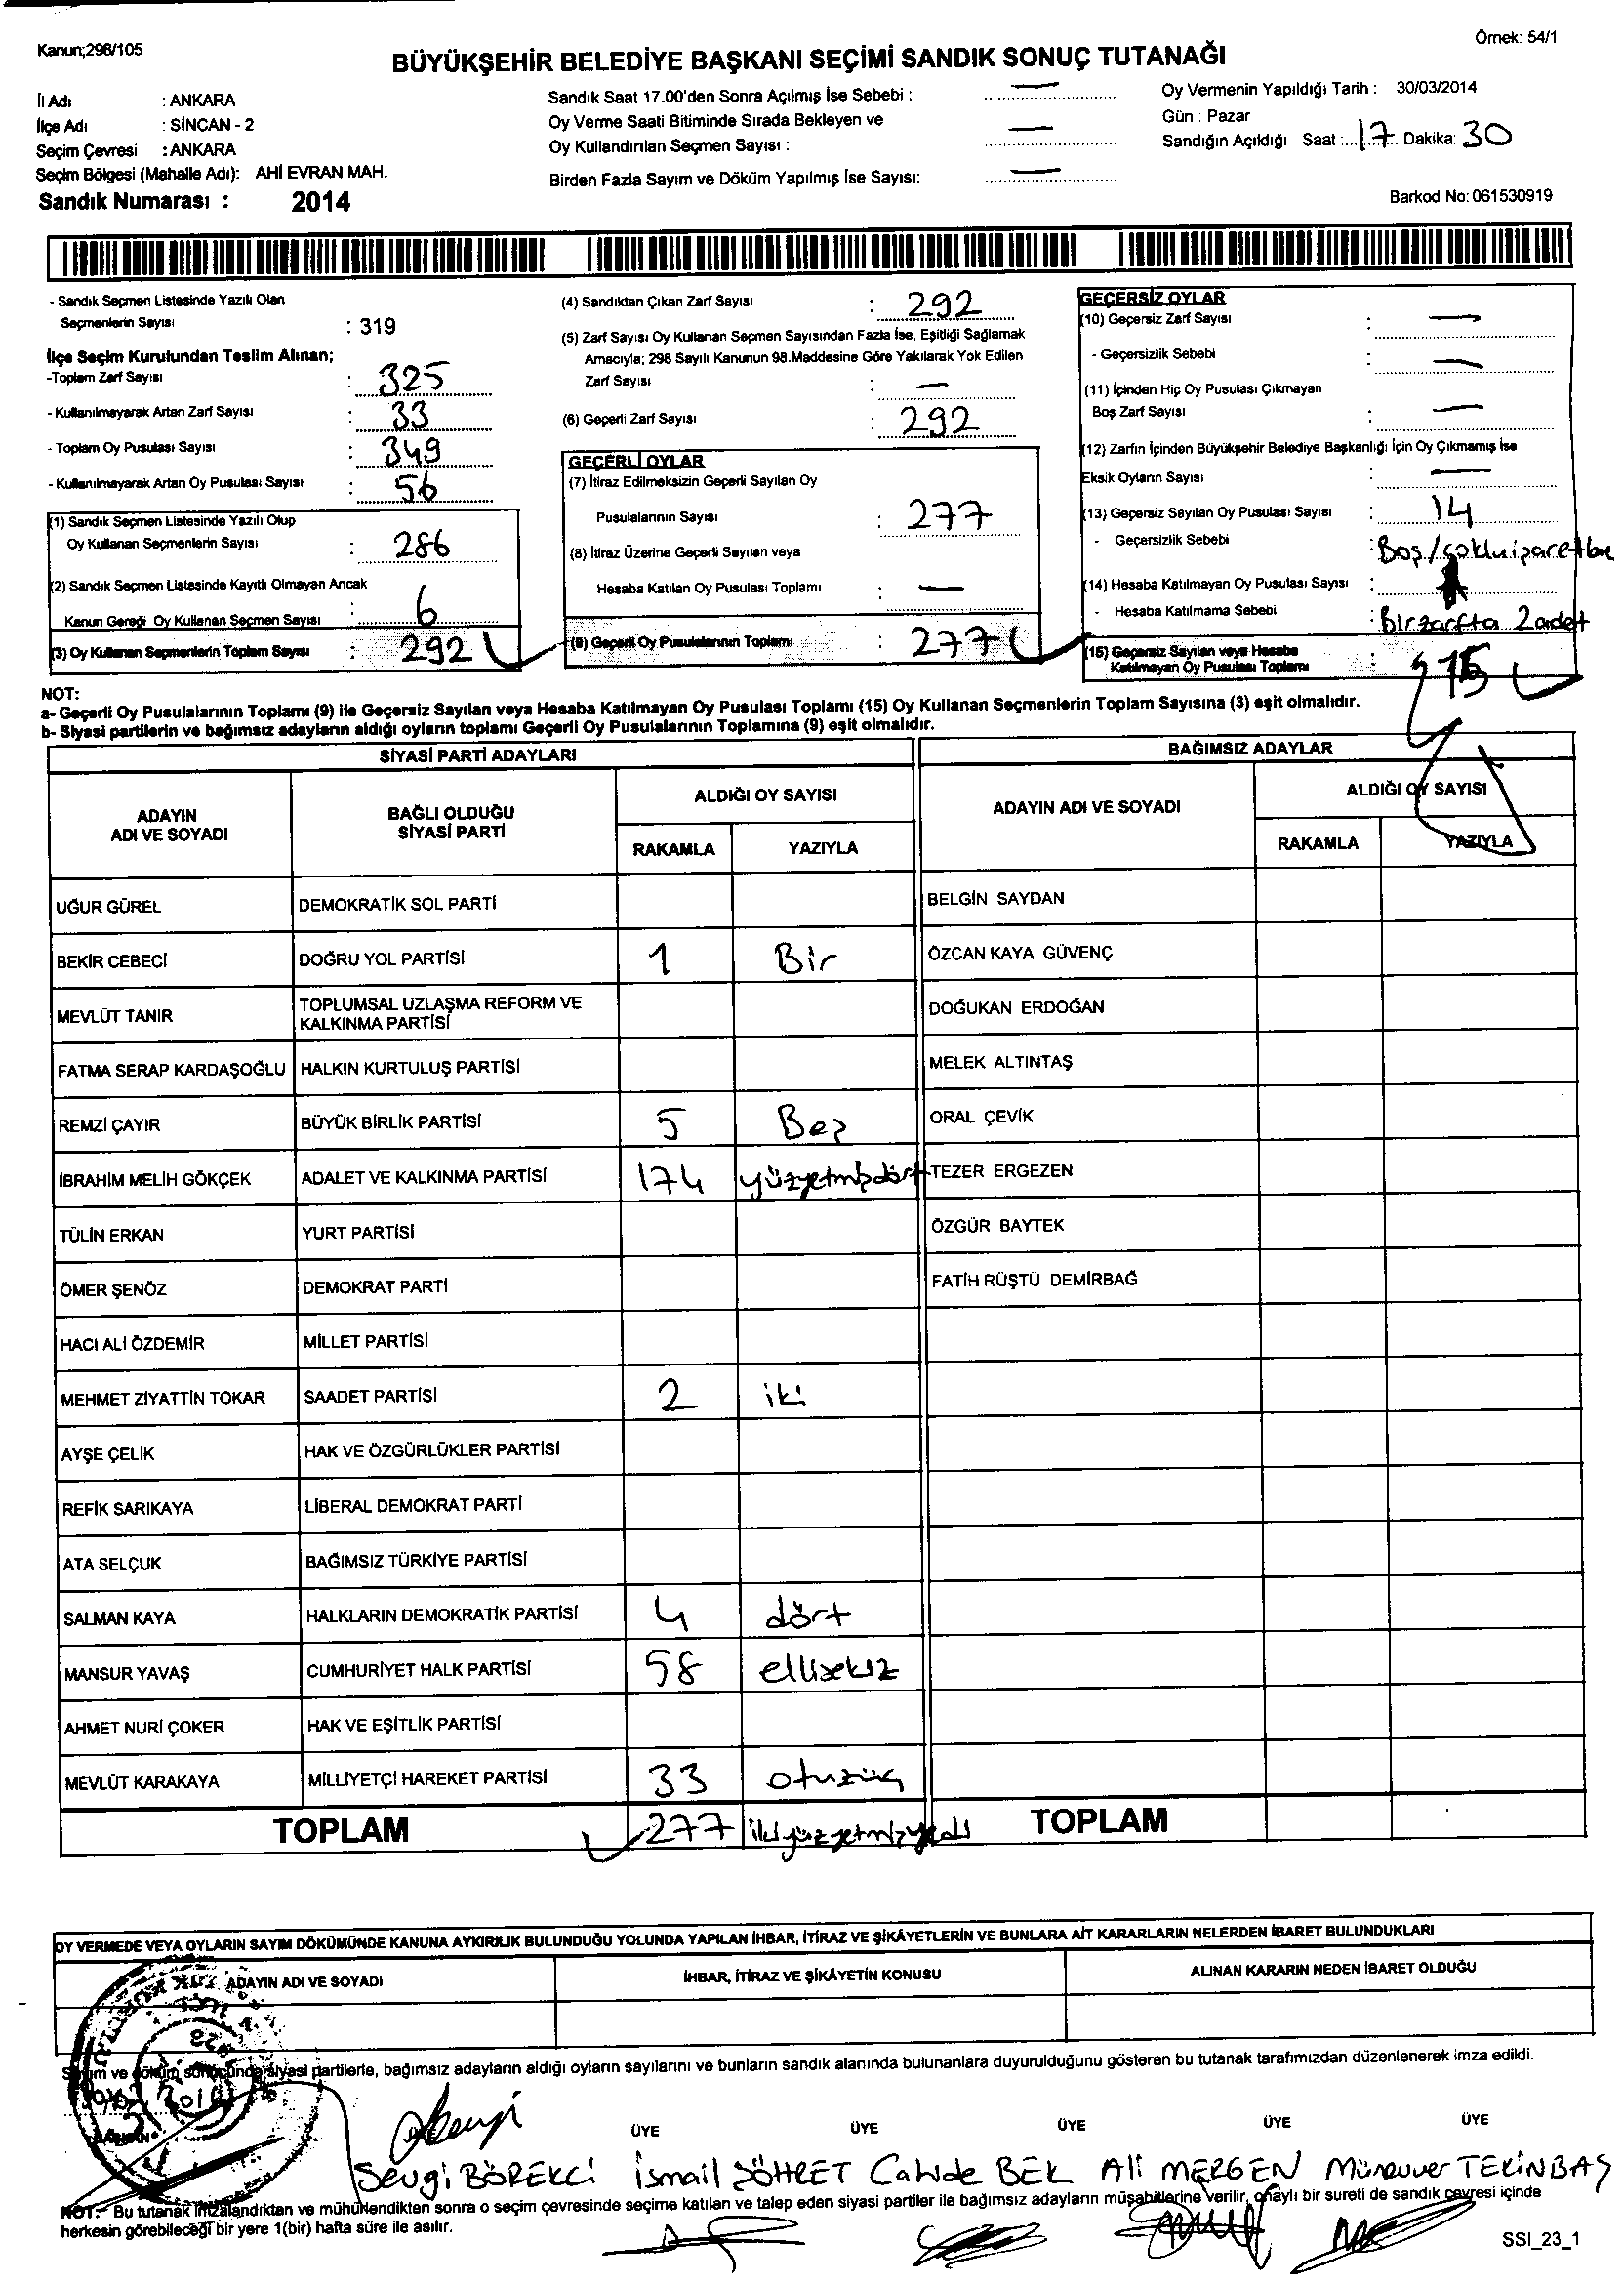 Kanun;298/105
Örnek: 54/1
BÜYÜKŞEHİR BELEDİYE BAŞKANI SEÇİMİ SANDIK SONUÇ TUTANAĞI
İl Adı : ANKARA
İlçe Adı : SİNCAN - 2
Seçim Çevresi : ANKARA
Seçim Bölgesi (Mahalle Adı): AHİ EVRAN MAH.
Sandık Numarası : 2014
Sandık Saat 17.00'den Sonra Açılmış İse Sebebi : —
Oy Verme Saati Bitiminde Sırada Bekleyen ve
Oy Kullandırılan Seçmen Sayısı : —
Birden Fazla Sayım ve Döküm Yapılmış İse Sayısı: —
Oy Vermenin Yapıldığı Tarih : 30/03/2014
Gün : Pazar
Sandığın Açıldığı Saat : 17 Dakika: 30
Barkod No: 061530919
- Sandık Seçmen Listesinde Yazılı Olan
Seçmenlerin Sayısı : 319
İlçe Seçim Kurulundan Teslim Alınan;
-Toplam Zarf Sayısı : 325
- Kullanılmayarak Artan Zarf Sayısı : 33
- Toplam Oy Pusulası Sayısı : 349
- Kullanılmayarak Artan Oy Pusulası Sayısı : 56
(1) Sandık Seçmen Listesinde Yazılı Olup
Oy Kullanan Seçmenlerin Sayısı : 286
(2) Sandık Seçmen Listesinde Kayıtlı Olmayan Ancak
Kanun Gereği Oy Kullanan Seçmen Sayısı : 6
(3) Oy Kullanan Seçmenlerin Toplam Sayısı : 292
(4) Sandıktan Çıkan Zarf Sayısı : 292
(5) Zarf Sayısı Oy Kullanan Seçmen Sayısından Fazla İse, Eşitliği Sağlamak
Amacıyla; 298 Sayılı Kanunun 98.Maddesine Göre Yakılarak Yok Edilen
Zarf Sayısı : —
(6) Geçerli Zarf Sayısı : 292
GEÇERLİ OYLAR
(7) İtiraz Edilmeksizin Geçerli Sayılan Oy
Pusulalarının Sayısı : 277
(8) İtiraz Üzerine Geçerli Sayılan veya
Hesaba Katılan Oy Pusulası Toplamı : —
(9) Geçerli Oy Pusulalarının Toplamı : 277
GEÇERSİZ OYLAR
(10) Geçersiz Zarf Sayısı : —
- Geçersizlik Sebebi : —
(11) İçinden Hiç Oy Pusulası Çıkmayan
Boş Zarf Sayısı : —
(12) Zarfın İçinden Büyükşehir Belediye Başkanlığı İçin Oy Çıkmamış İse
Eksik Oyların Sayısı : —
(13) Geçersiz Sayılan Oy Pusulası Sayısı : 14
- Geçersizlik Sebebi : Boş/
(14) Hesaba Katılmayan Oy Pusulası Sayısı :
- Hesaba Katılmama Sebebi : Bir zarfta 2 adet
(15) Geçersiz Sayılan veya Hesaba
Katılmayan Oy Pusulası Toplamı : 15
NOT:
a- Geçerli Oy Pusulalarının Toplamı (9) ile Geçersiz Sayılan veya Hesaba Katılmayan Oy Pusulası Toplamı (15) Oy Kullanan Seçmenlerin Toplam Sayısına (3) eşit olmalıdır.
b- Siyasi partilerin ve bağımsız adayların aldığı oyların toplamı Geçerli Oy Pusulalarının Toplamına (9) eşit olmalıdır.
SİYASİ PARTİ ADAYLARI
BAĞIMSIZ ADAYLAR
ADAYIN ADI VE SOYADI
BAĞLI OLDUĞU SİYASİ PARTİ
ALDIĞI OY SAYISI
RAKAMLA YAZIYLA
ADAYIN ADI VE SOYADI
ALDIĞI OY SAYISI
RAKAMLA YAZIYLA
UĞUR GÜREL DEMOKRATİK SOL PARTİ BELGİN SAYDAN
BEKİR CEBECİ DOĞRU YOL PARTİSİ 1 Bir ÖZCAN KAYA GÜVENÇ
MEVLÜT TANIR TOPLUMSAL UZLAŞMA REFORM VE KALKINMA PARTİSİ DOĞUKAN ERDOĞAN
FATMA SERAP KARDAŞOĞLU HALKIN KURTULUŞ PARTİSİ MELEK ALTINTAŞ
REMZİ ÇAYIR BÜYÜK BİRLİK PARTİSİ 5 Beş ORAL ÇEVİK
İBRAHİM MELİH GÖKÇEK ADALET VE KALKINMA PARTİSİ 174 yüzyetmişdört TEZER ERGEZEN
TÜLİN ERKAN YURT PARTİSİ ÖZGÜR BAYTEK
ÖMER ŞENÖZ DEMOKRAT PARTİ FATİH RÜŞTÜ DEMİRBAĞ
HACI ALİ ÖZDEMİR MİLLET PARTİSİ
MEHMET ZİYATTİN TOKAR SAADET PARTİSİ 2 iki
AYŞE ÇELİK HAK VE ÖZGÜRLÜKLER PARTİSİ
REFİK SARIKAYA LİBERAL DEMOKRAT PARTİ
ATA SELÇUK BAĞIMSIZ TÜRKİYE PARTİSİ
SALMAN KAYA HALKLARIN DEMOKRATİK PARTİSİ 4 dört
MANSUR YAVAŞ CUMHURİYET HALK PARTİSİ 58 ellisekiz
AHMET NURİ ÇOKER HAK VE EŞİTLİK PARTİSİ
MEVLÜT KARAKAYA MİLLİYETÇİ HAREKET PARTİSİ 33 otuzüç
TOPLAM 277 ikiyüzyetmişyedi TOPLAM
OY VERMEDE VEYA OYLARIN SAYIM DÖKÜMÜNDE KANUNA AYKIRILIK BULUNDUĞU YOLUNDA YAPILAN İHBAR, İTİRAZ VE ŞİKÂYETLERİN VE BUNLARA AİT KARARLARIN NELERDEN İBARET BULUNDUKLARI
ADAYIN ADI VE SOYADI İHBAR, İTİRAZ VE ŞİKÂYETİN KONUSU ALINAN KARARIN NEDEN İBARET OLDUĞU
Sayım ve döküm sonucunda siyasi partilerle, bağımsız adayların aldığı oyların sayılarını ve bunların sandık alanında bulunanlara duyurulduğunu gösteren bu tutanak tarafımızdan düzenlenerek imza edildi.
ÜYE ÜYE ÜYE ÜYE ÜYE
Sevgi BÖREKCİ İsmail ŞÖHRET Cahide BEK Ali MERGEN Münevver TEKİNBAŞ
NOT:- Bu tutanak imzalandıktan ve mühürlendikten sonra o seçim çevresinde seçime katılan ve talep eden siyasi partiler ile bağımsız adayların müşahitlerine verilir, onaylı bir sureti de sandık çevresi içinde
herkesin görebileceği bir yere 1(bir) hafta süre ile asılır.
SSI_23_1